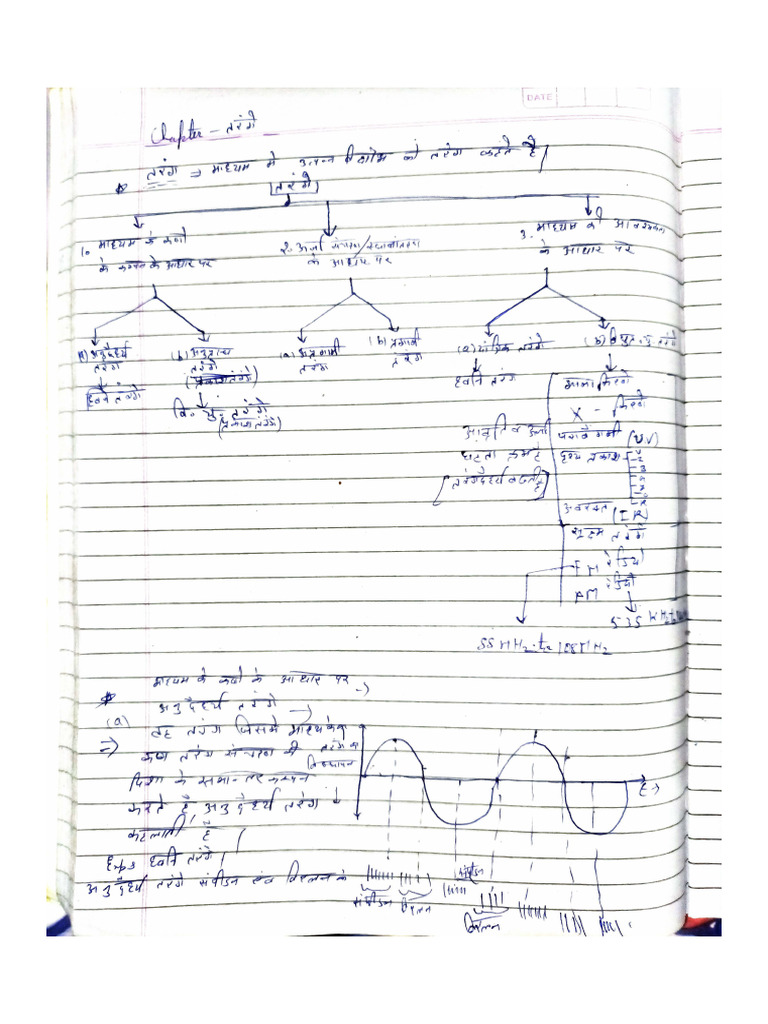 DATE
Chapter - तरंगे
* तरंग => माध्यम मे उत्पन्न विक्षोभ को तरंग कहते है
[तरंगे]
1. माध्यम के कणों
के कम्पन के आधार पर
2. ऊर्जा संचरण/स्थानांतरण
के आधार पर
3. माध्यम की आवश्यकता
के आधार पर
(a) अनुदैर्ध्य
तरंग
ध्वनि तरंगे
(b) अनुप्रस्थ
तरंगे
(प्रकाश तरंगे)
वि. चु. तरंगे
(प्रकाश तरंगे)
(a) अप्रगामी
तरंग
(b) प्रगामी
तरंग
(a) यांत्रिक तरंगे
ध्वनि तरंग
(b) विद्युत चु. तरंगे
गामा किरणे
X - किरणे
पराबैंगनी (UV)
दृश्य प्रकाश
अवरक्त (IR)
सूक्ष्म तरंगे
FM रेडियो
AM रेडियो
आवृति व ऊर्जा
घटता क्रम है
[तरंगदैर्ध्य बढ़ती है]
535 KHz to
माध्यम के कणों के आधार पर
* अनुदैर्ध्य तरंगे
(a) वह तरंग जिसमे माध्यम के
=> कण तरंग संचरण की
दिशा के समान्तर कम्पन
करते है, अनुदैर्ध्य तरंग
कहलाती है
तरंग का
विस्थापन
t →
Exp ध्वनि तरंगे
अनुदैर्ध्य तरंगे संपीडन एवं विरलन के
संपीडन
विरलन
संपीडन
विरलन